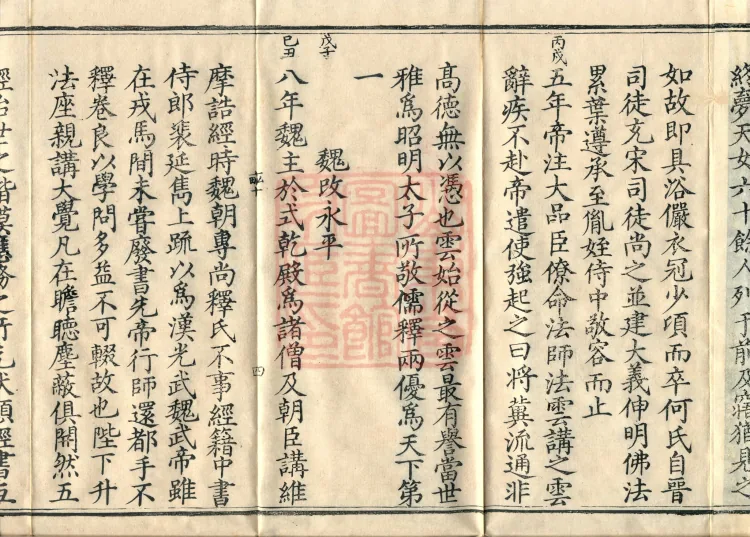 終夢天如六十餘人列于前及寤猶見之
如故即具浴儼衣冠少頃而卒何氏自晉
司徒充宋司徒尚之並建大義伸明佛法
累葉遵承至胤姪侍中敬容而止
丙戌
五年帝注大品臣僚命法師法雲講之雲
辭疾不赴帝遣使強起之曰將冀流通非
高德無以憑也雲始從之雲最有譽當世
雅爲昭明太子所敬儒釋兩優爲天下第
一
戊子
魏改永平
己丑
八年魏主於式乾殿爲諸僧及朝臣講維
四
摩詰經時魏朝專尚釋氏不事經籍中書
侍郎裴延雋上疏以爲漢光武魏武帝雖
在戎馬間未甞廢書先帝行師還都手不
釋卷良以學問多益不可輟故也陛下升
法座親講大覺凡在瞻聽塵蔽俱開然五
經治世之楷模應務之所先伏願經書互